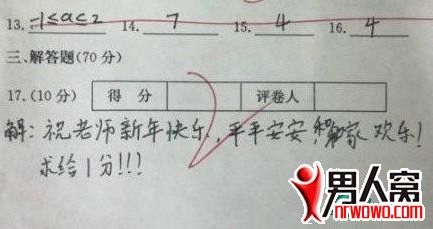 13. -1≤a≤2 14. 7 15. 4 16. 4
三、解答题(70 分)
17.(10 分) 得 分 评卷人
解: 祝老师新年快乐, 平平安安, 家欢乐!
求给1分!!!
男人窝
nrwowo.com